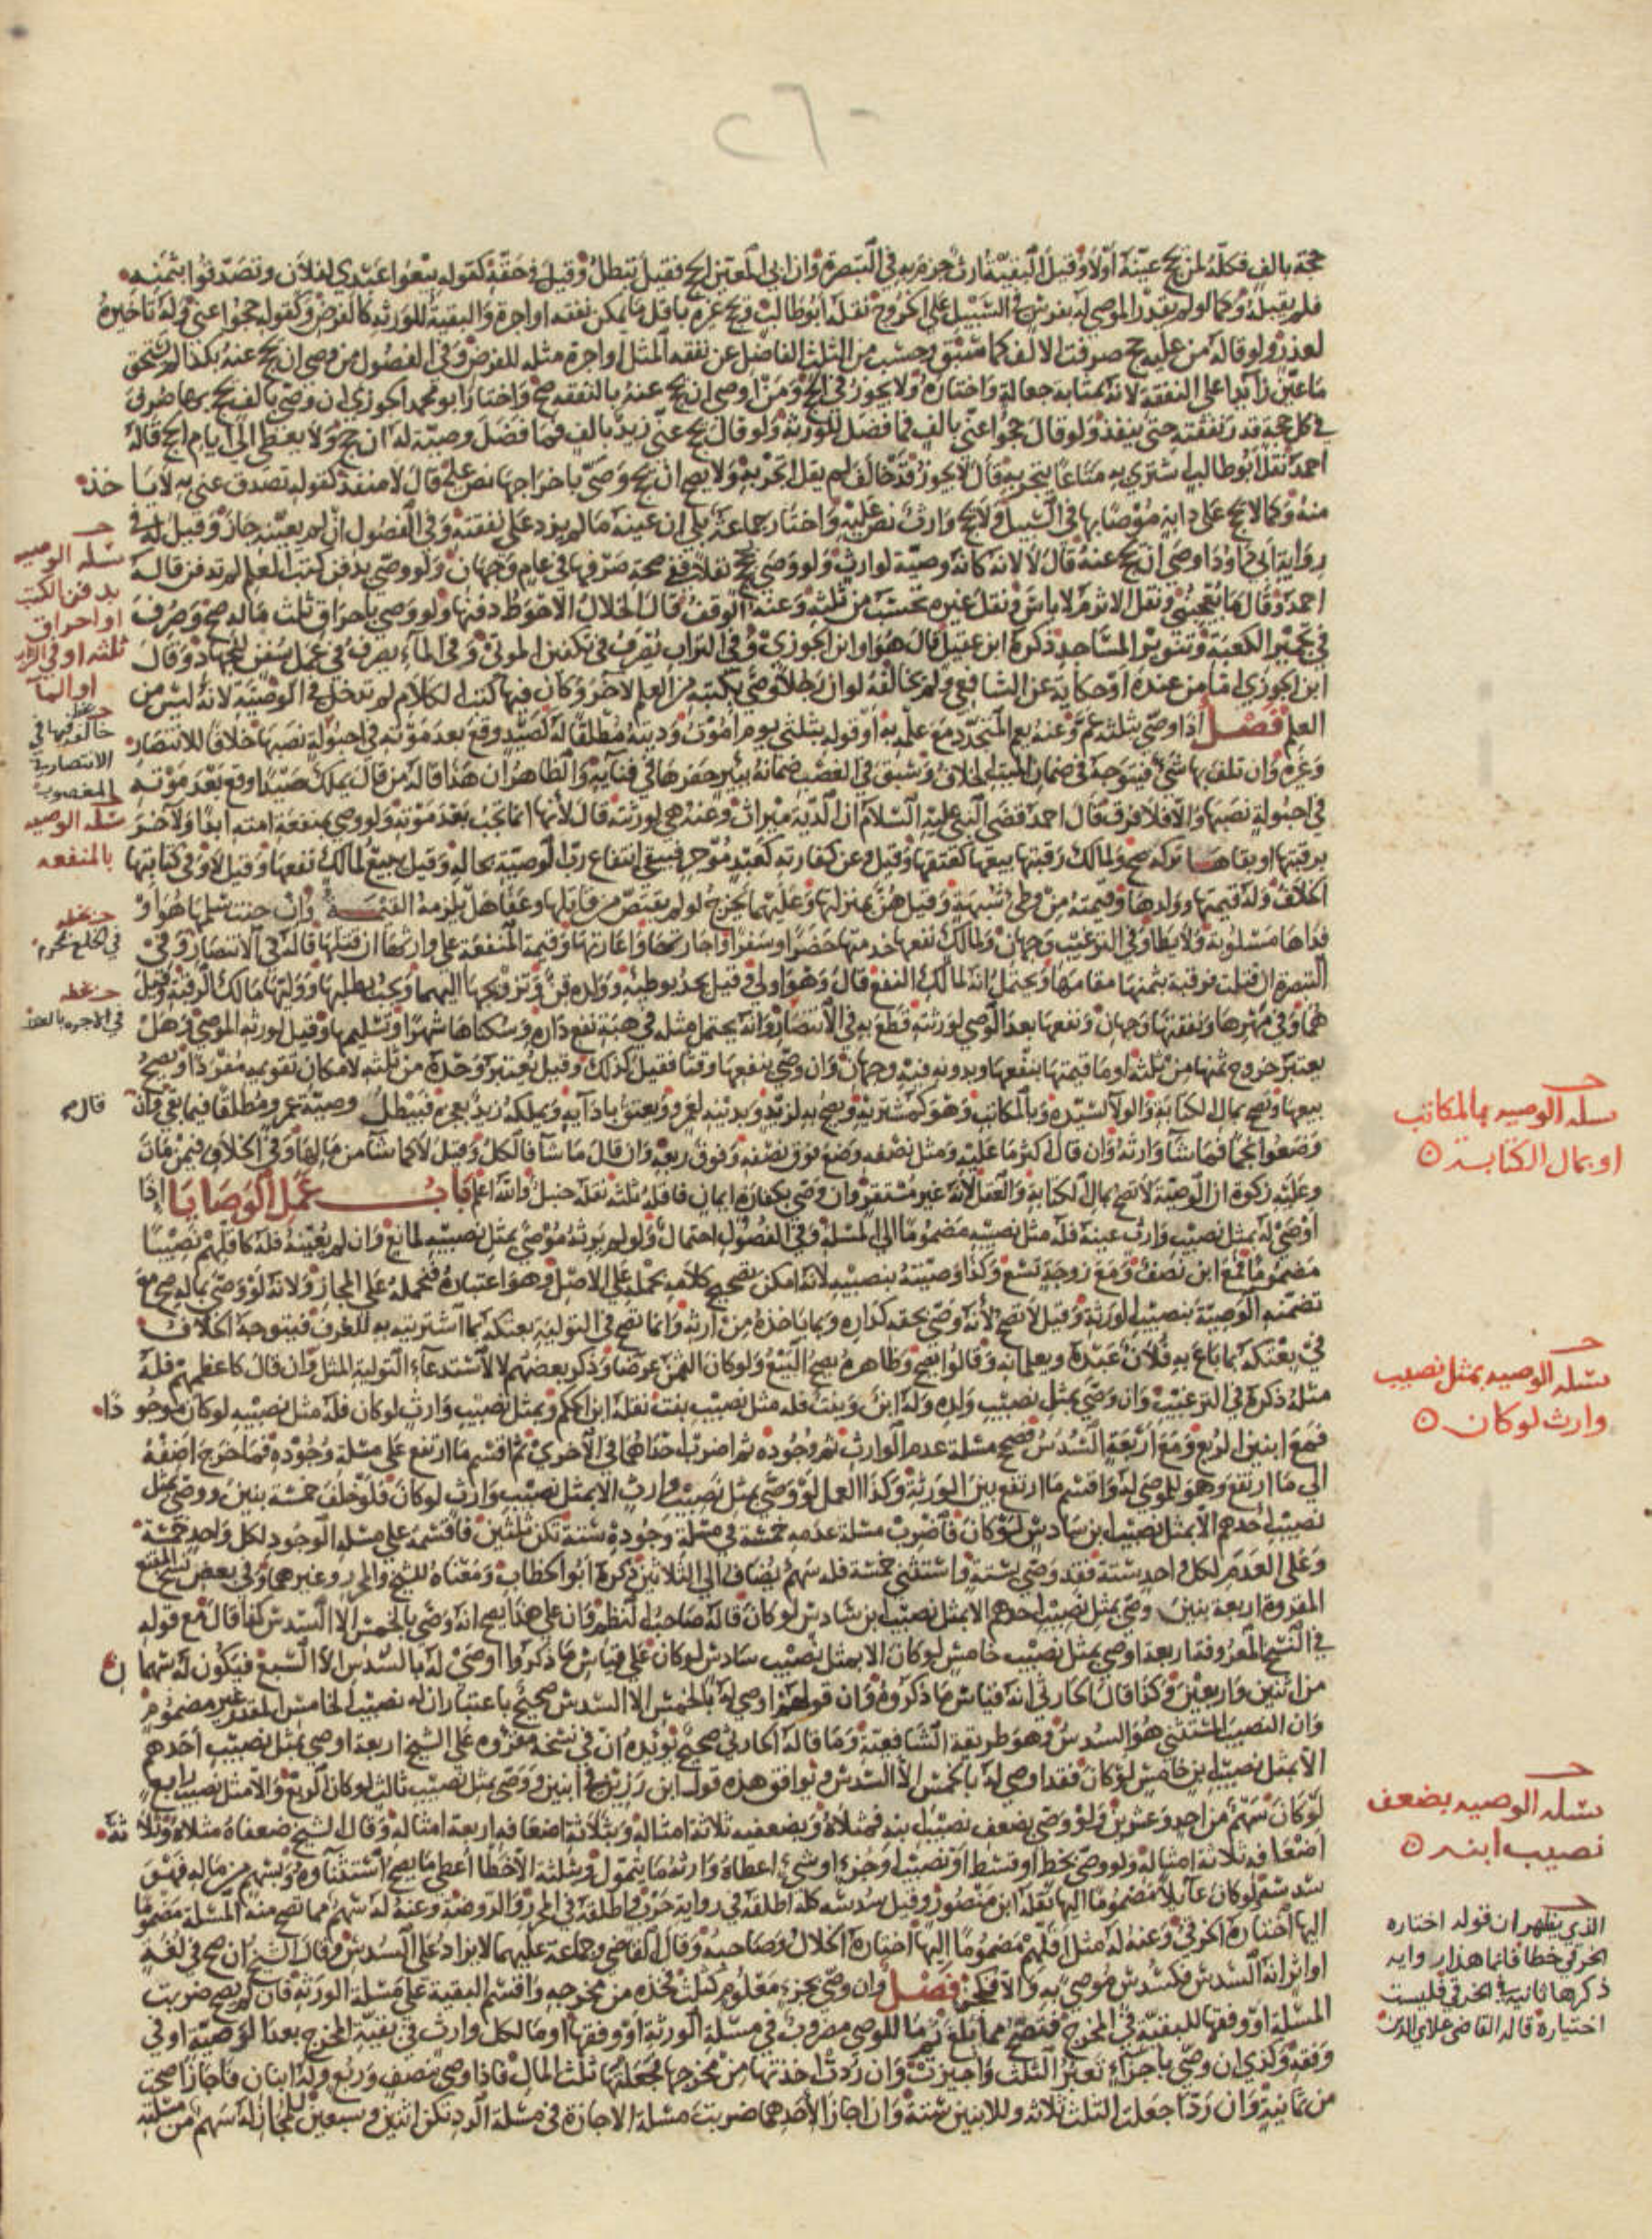 ٢٦٠
حجة بالف فكله لمن يحج عينه اولا وقيل البقية ارث جزم به في التبصرة وان ابى المعين الحج فقيل تبطل وقيل في حقه كقوله بيعوا عبدي لفلان وتصدقوا بثمنه
فلم يقبله وكما لو لم يقدر الموصى له بفرس في السبيل على الخروج نقله ابو طالب ويحج غيره باقل ما يمكن نفقه او اجرة والبقية للورثه كالفرض وكقوله حجوا عني وله تاخيره
لعذر ولو قاله من عليه حج صرفت الالف كما سبق وحسب من الثلث الفاضل عن نفقه المثل او اجرة مثله للفرض وفي الفصول من وصى ان يحج عنه بكذا لم يستحق
ما عين زايدا على النفقة لانه بمثابة جعالة واختاره ولا يجوز في الحج ومن اوصى ان يحج عنه بالنفقه صح واختار ابو محمد الجوزي ان وصى بالف يحج بها صرف
في كل حجة قدر نفقته حتى ينفذ ولو قال حجوا عني بالف فما فضل للورثة ولو قال يحج عني زيد بالف فما فضل وصية له ان حج ولا يعطى الى ايام الحج قاله
احمد نقل ابو طالب اشترى به متاعا يتجر به قال لا يجوز قد خالف لم يقل اتجر به ولا يصح ان يحج وصي باخراجها نص عليه قال لانه منفذ كقوله تصدق عني به لا ياخذ
منه وكما لا يحج على دابة موصا بها في السبيل ولا يحج وارث نص عليه واختار جماعة بلى ان عينه ما لم يزد على نفقته وفي الفصول ان لم يعينه جاز وقيل له في
رواية ابي داود اوصى ان يحج عنه قال لا لانه كانه وصية لوارث ولو وصى بحج نفلا ففي صحة صرفها في عام وجهان ولو وصى بدفن كتب العلم لم تدفن قاله
احمد وقال ما يعجبني ونقل الاثرم لا باس ونقل غيره تحسب من ثلثه وعنه الوقف قال الخلال الاحوط دفنها ولو وصى باحراق ثلث ماله صح وصرف
في تجمير الكعبة وتنوير المساجد ذكره ابن عقيل قال هو وابن الجوزي وفي التراب يصرف في تكفين الموتى وفي الماء يصرف في عمل سفن للجهاد وقال
ابن الجوزي اما من عنده او حكاية عن الشافعي ولم يخالفه لو ان رجلا وصى بكتبه من العلم لاخر وكان فيها كتب الكلام لم تدخل في الوصية لانه ليس من
العلم فصل اذا وصى بثلثه عم وعنه يعم المتجدد مع علمه به او قوله بثلثي يوم اموت وديته مطلقا له كصيد وقع بعد موته في احبولة نصبها خلافا للانتصار
وغيره وان تلف بها شيء فيتوجه في ضمان الميت الخلاف وسبق في الغصب ضمانه ببير حفرها في فنايه والظاهر ان هذا قاله من قال يملك صيدا وقع بعد موته
في احبولة نصبها والا فلا فرق قال احمد قضى النبي عليه السلام ان الدية ميراث وعنه هي لورثته قال لانها انما تجب بعد موته ولو وصى بمنفعة امته ابدا ولاخر
برقبتها او بقاها تركه صح ولمالك رقبتها بيعها كعتقها وقيل وعن كفارته كعبد مؤجر فيبقى انتفاع رب الوصية بحاله وقيل يبيع لمالك نفعها وقيل لا وفي كتابتها
الخلاف وله قيمتها وولدها وقيمته من وطئ شبهة وقيل هن بمنزلتها وعليهما يخرج لو لم يقتص من قاتلها وعفا هل يلزمه القيمة وان جنت سلمها هو او
فداها مسلوبة ولا يطا وفي الترغيب وجهان ولمالك نفعها خدمتها حضرا وسفرا واجارتها واعارتها وقيمة المنفعة على وارثها ان قتلها قاله في الانتصار وفي
التبصرة ان قتلت فرقبة بثمنها مقامها ويحتمل انه لمالك النفع قال وهو اولى وقيل يحد بوطئه وولده قن وتزويجها اليهما ويجب بطلبها ووليها مالك الرقبة وقيل
هما وفي مهرها ونفقتها وجهان ونفعها بعد الوصي لورثته قطع به في الانتصار وانه يحتمل مثله في هبة نفع داره وسكناها شهرا وتسليمها وقيل لورثه الموصي وهل
يعتبر خروج ثمنها من ثلثه او ما قيمتها بنفعها وبدونه فيه وجهان وان وصى بنفعها وقتا فقيل كذلك وقيل يعتبر وحده من ثلثه لامكان تقويمه مفردا ويصح
بيعها وتصح بمال الكتابة والولا لسيده وبالمكاتب وهو كمشتريه ويصح به لزيد وبدينه لعمرو ويعتق بادايه ويملكه زيد بعجزه فتبطل وصية عمرو مطلقا فيما بقي وان قال
وضعوا نجما فما شا وارثه وان قال اكثر ما عليه ومثل نصفه وضع فوق نصفه وفوق ربعه وان قال ما شا فالكل وقيل لا كما شا من مالها وفي الخلاف فيمن مات
وعليه زكوة ان الوصية لا تصح بمال الكتابة والعقل لانه غير مستقر وان وصى بكفارة ايمان فاقله ثلثة نقله حنبل والله اعلم باب عمل الوصايا اذا
اوصى له بمثل نصيب وارث عينه فله مثل نصيبه مضموما الى المسلة وفي الفصول احتمال ولو لم يرثه موصى بمثل نصيبه لمانع وان لم يعينه فله كاقلهم نصيبا
مضموما فمع ابن نصف ومع زوجة تسع وكذا وصيته بنصيبه لانه امكن تصحيح كلامه بحمله على الاصل وهو اعتباره فحمله على المجاز ولانه لو وصى بماله صح مع
تضمنه الوصية بنصيب الورثة وقيل لا تصح لانه وصى بحقه كداره وبما ياخذه من ارثه وانما تصح في التولية بعتكه بما اشتريته به للعرف فيتوجه الخلاف
في بعتكه بما باع به فلان عبده ويعلمانه وقالوا يصح وظاهره يصح البيع ولو كان الثمن عرضا وذكر بعضهم لا لاستدعاء التولية المثل وان قال كاعظمهم فله
مثله ذكره في الترغيب وان وصى بمثل نصيب ولده وله ابن وبنت فله مثل نصيب بنت نقله ابن الحكم وبمثل نصيب وارث لو كان فله مثل نصيبه لو كان موجودا
فمع ابنين الربع ومع اربعة السدس فصحح مسلة عدم الوارث ثم وجوده ثم اضرب احداهما في الاخرى ثم اقسم ما ارتفع على مسلة وجوده فما خرج اضفه
الى ما ارتفع وهو للموصى له واقسم ما ارتفع بين الورثة وكذا العمل لو وصى بمثل نصيب وارث الا بمثل نصيب وارث لو كان فلو خلف خمسة بنين ووصى بمثل
نصيب احدهم الا بمثل نصيب ابن سادس لو كان فاضرب مسلة عدمه خمسة في مسلة وجوده ستة تكن ثلثين فاقسمه على مسلة الوجود لكل واحد خمسة
وعلى العدم لكل واحد ستة فقد وصى بستة واستثنى خمسة فله سهم يضاف الى الثلاثين ذكره ابو الخطاب ومعناه للشيخ والمحرر وغيرهما وفي بعض نسخ المقنع
المقروة اربعة بنين وصى بمثل نصيب احدهم الا بمثل نصيب ابن سادس لو كان قاله صاحب النظم فان على هذا يصح انه وصى بالخمس الا السدس كما قال مع قوله
في النسخ المعروفة اربعة اوصى بمثل نصيب خامس لو كان الا بمثل نصيب سادس لو كان على قياس ما ذكروا اوصى له بالسدس الا السبع فيكون له سهمان
من اثنين واربعين وكذا قال الحارثي انه قياس ما ذكروه وان قولهم اوصى له بالخمس الا السدس صحيح باعتبار ان له نصيب الخامس المقدر غير مضموم
وان النصيب المستثنى هو السدس وهو طريقة الشافعية وما قاله الحارثي صحيح يؤيده ان في نسخة مقروه على الشيخ اربعة اوصى بمثل نصيب احدهم
الا بمثل نصيب ابن خامس لو كان فقد اوصى له بالخمس الا السدس ويوافق هذه قول ابن رزين في ابنين ووصى بمثل نصيب ثالث لو كان الربع والا مثل نصيب رابع
لو كان سهم من احد وعشرين ولو وصى بضعف نصيب ابنه فمثلاه وبضعفيه ثلاثة امثاله وبثلاثة اضعافه اربعة امثاله وقال الشيخ ضعفاه مثلاه وثلاثة
اضعافه ثلاثة امثاله ولو وصى بحظ او قسط او نصيب او جزء او شيء اعطاه وارثه ما يتمول وثلثه الاحظا اعطي ما يصح استثناوه وبسهم من ماله فهو
سدس ولو كان عايلا مضموما اليها نقله ابن منصور وقيل سدسه كله اطلقه في رواية حرب واطلقه في المحرر والروضة وعنه له سهم مما تصح منه المسلة مضموما
اليها اختاره الخرقي وعنه له مثل اقلهم مضموما اليها اختاره الخلال وصاحبه وقال القاضي وجماعة عليهما لا يزاد على السدس وقال الشيخ ان صح في لغة
او اثر انه السدس فكسدس موصى به والا فكجزء فصل وان وصى بجزء معلوم كثلث تاخذه من مخرجه واقسم البقية على مسلة الورثه فان لم تصح ضربت
المسلة او وفقها للبقية في المخرج فتصح مما بلغ ثم ما للوصي مضروب في مسلة الورثة او وفقها وما لكل وارث في بقية المخرج بعد الوصية او في
وفقه وكذي ان وصى باجزاء تعبر الثلث واجيزت وان ردت اخذتها من مخرجها فجعلتها ثلث المال فاذا وصى بنصف وربع وله ابنان فاجازا صحت
من ثمانية وان ردا جعلت الثلث ثلاثه وللابنين ستة وان اجازا لاحدهما ضربت مسلة الاجازة في مسلة الرد تكن اثنين وسبعين للمجاز له سهم من مسلته
مسله الوصيه
بدفن الكتب
او احراق
ثلثه او في التراب
او الما
خالفه فيها في
الانتصار في
المغصوب
مسله الوصيه
بالمنفعه
في الخلع محرم
في الاجره بالعقد
مسله الوصيه بالمكاتب
او بمال الكتابة
مسله الوصيه بمثل نصيب
وارث لو كان
مسله الوصيه بضعف
نصيب ابنه
الذي يظهر ان قوله اختاره
الخرقي خطا فانما هذا رواية
ذكرها ثانية في الخرقي فليست
اختياره قاله القاضي علاي الدين